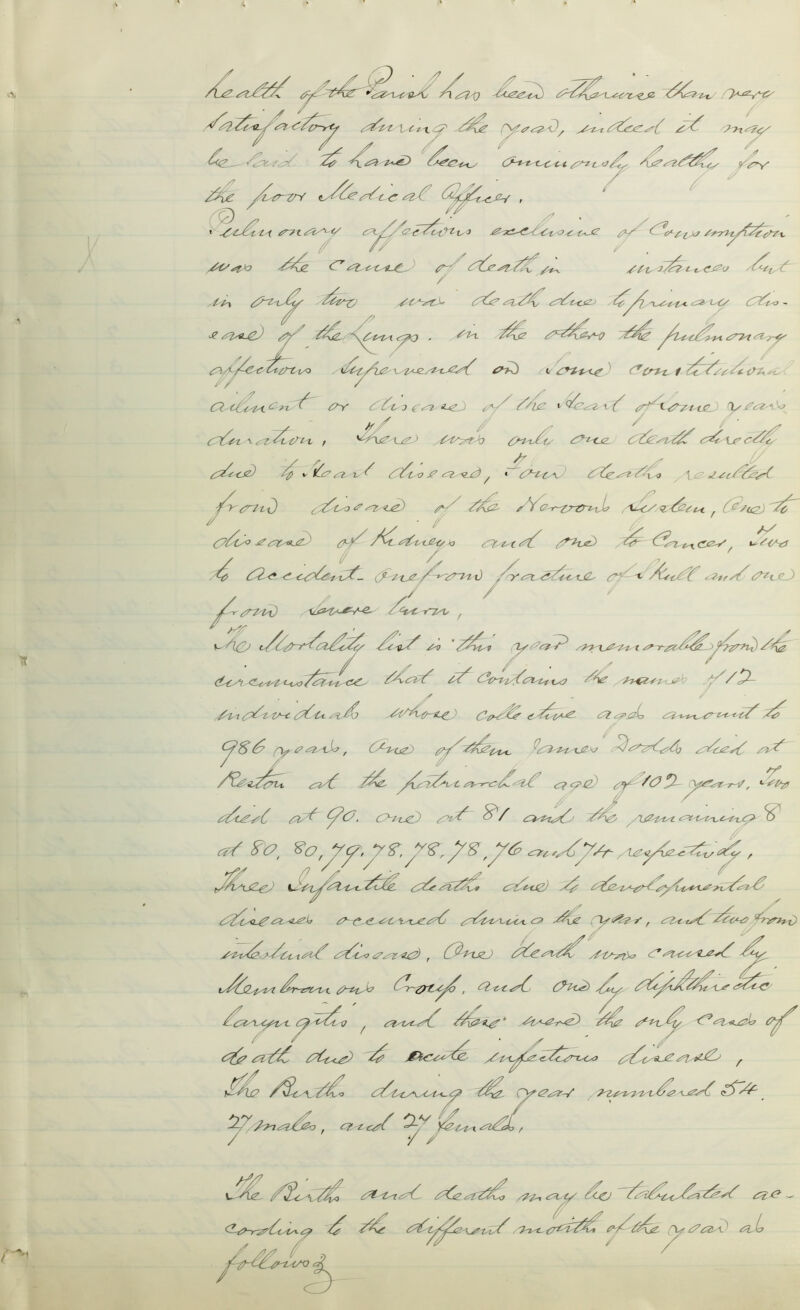 health of the Parish has been otherwise than very
satisfactory during the year, indeed it may
be said to have been ominously healthy for
the poor Medical Officer.
Pulmonary affections exclusive of Consumption
was the Cause of death in instances but
in only two was death due to primary dis-
ease of the lungs. in the others the pulmonary
affections supervened on some constitutional
ailment or disease of the Heart of some years
duration, There was only one death directly
due to Heart disease, Four deaths resulted
from disease of the Nervous System, One to
disease of Kidneys and one to Cancer, Two
to Accident. One from fracture of Skull and one
from severe burn,
The Mortality list is this year memorable from the
circumstance that it Contains the names of 12
individuals whose Collective ages amount to
986 years, One of them James Dodds died at
Reston at the patriarchal age of 102 years, Two
died at 90. one at 81 and the remaining 8
at 80, 80, 79. 78. 78, 78, 76 and 74 respectively,
Three Infantile deaths due to developmental
diseases occurred during the year, and two from
intestinal disease, One death was caused by
Membranous Croup, and One by diphtheretic
laryngitis, and these were the only Cases of
death due to acute infectious disease,
The Births during the year numbered 54.
27 males, and 27 females,
The Births and deaths may be tabulated ac-
cording to the different months of the year as
follows